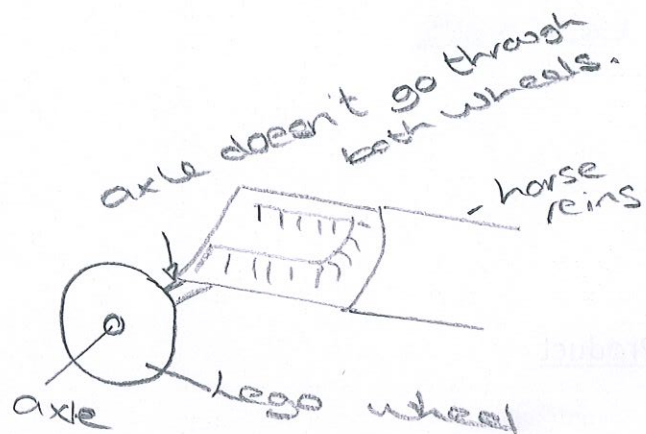 axle doesn't go through
both wheels.
horse
reins
axle
Lego wheel
Product